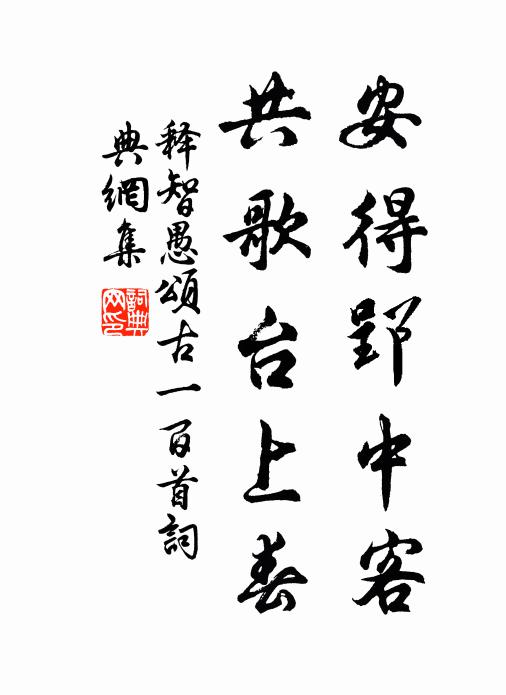 安得郢中客
共歌台上春
释智愚頌古一百首詞
典網集
詞典
网印